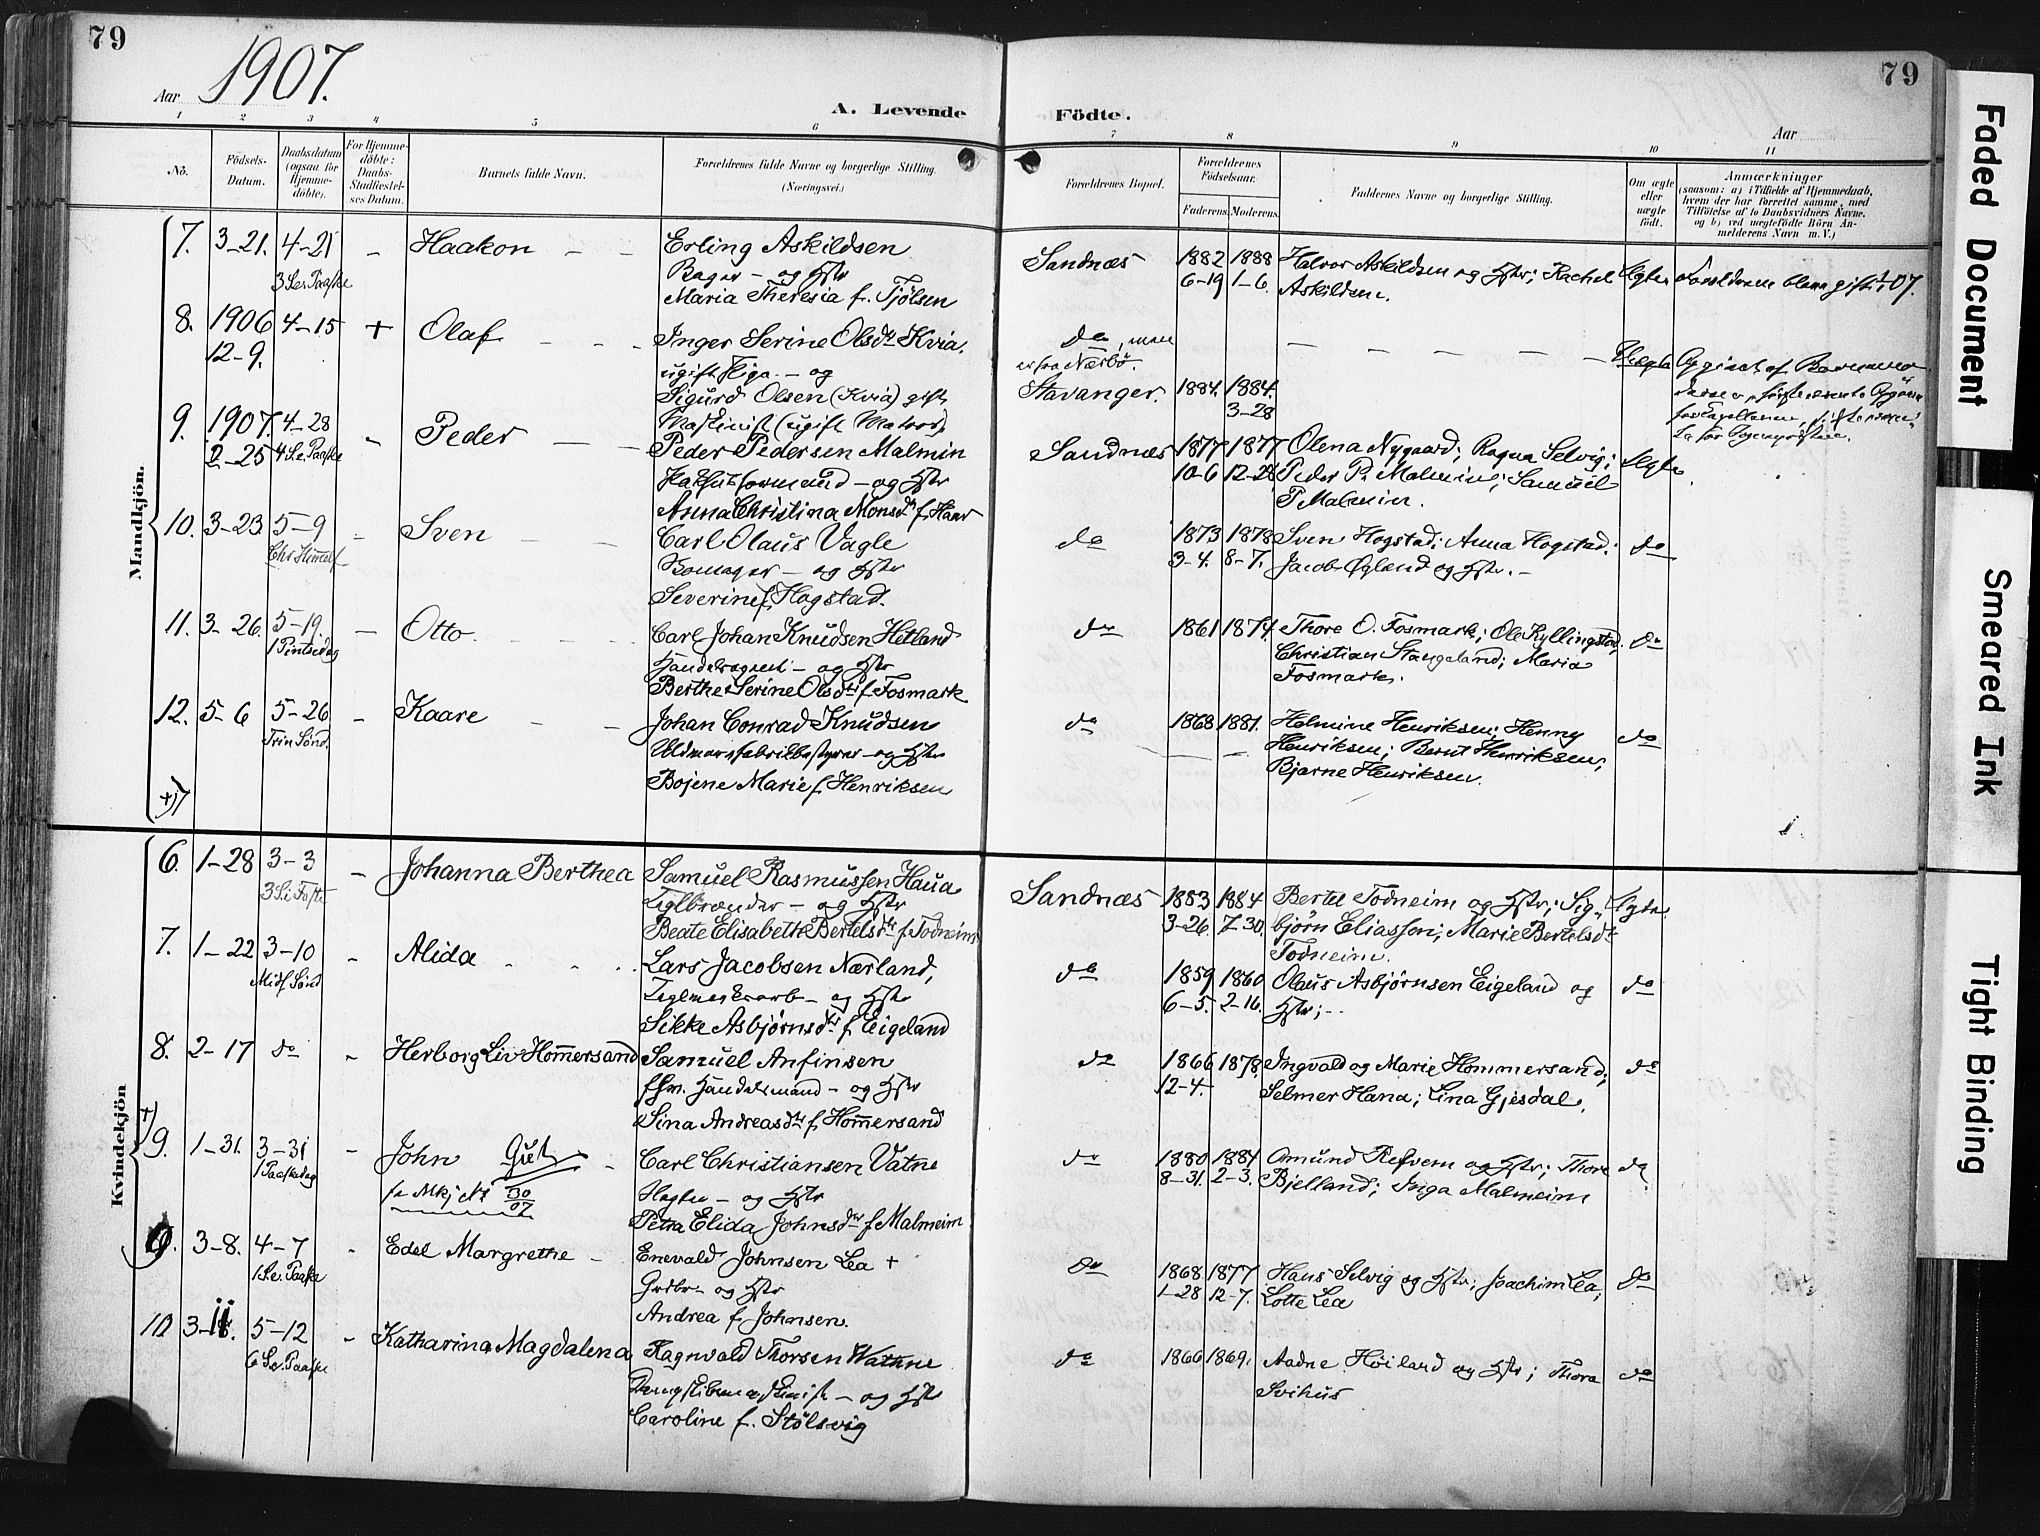 79
1907.
Aar
A. Levende
Födte.
79
Aar
1 2 3 4 5 6 7 8 9 10 11
No.
Födsels-Datum.
Daabsdatum (ogsaa for Hjemme-döbte).
For Hjemme-döbte: Daabs-Stadfæstel-ses Datum.
Barnets fulde Navn.
Forældrenes fulde Navne og borgerlige Stilling. (Næringsvei.)
Forældrenes Bopæl.
Forældrenes Födselsaar.
Faderens. Moderens.
Faddernes Navne og borgerlige Stilling.
Om ægte eller uægte født.
Anmærkninger
(saasom: a) i Tilfælde af Hjemmedaab, hvem der har forrettet samme, med Tilföielse af to Daabsvidners Navne. og b) ved uægtefödte Börn An-melderens Navn m. V.)
Mandkjön.
7. 3-21. 4-21 - Haakon - - Erling Askildsen Sandnæs 1882 1888 Halvor Askildsen og Hstr; Rachel Ægte Forældrene bleve gift 07.
3 S.e. Paaske Bager - og Hstr 6-19 1-6. Askildsen.
Maria Theresia f. Tjølsen
8. 1906 4-15 + Olaf - - - Inger Serine Olsdtr Kvia. do, men
12-9. ugift Pige - og er fra Nærbø. Uægte
Sigurd Olsen (Kvia) gift Stavanger. 1884. 1884.
Maskinist (ugift Matros) 3-28
9. 1907. 4-28 - Peder - - Peder Pedersen Malmin Sandnæs 1877 1877 Olena Nygaard; Ragna Selvig; Ægte
2-25 4 S.e. Paaske formand - og Hstr 10-6 12-28 Peder P. Malmin; Samuel
Anna Christina Monsdtr f. Haar P Malmin.
10. 3-23 5-9 - Sven - - Carl Olaus Vagle do 1873 1878 Sven Hogstad; Anna Hogstad; do
Chr Himmelf - og Hstr 3-4. 8-7. Jacob Øgland og Hstr. -
Severine f. Hogstad.
11. 3-26. 5-19 - Otto - - - Carl Johan Knudsen Hetland do 1861 1874. Thore O. Fosmark; Ole Kyllingstad; do
1 Pintsedag - og Hstr Christian Stangeland; Maria
Berthe Serine Olsdtr f. Fosmark Fosmark.
12. 5-6 5-26 - Kaare - - Johan Conrad Knudsen do 1868 1881. Helmine Henriksen; Henny do
Trin Sønd. Uldvarefabrikbestyrer - og Hstr Henriksen; Bernt Henriksen;
Bojene Marie f. Henriksen Bjarne Henriksen.
Kvindekjön
6. 1-28 3-3 - Johanna Berthea Samuel Rasmussen Haua Sandnæs 1853 1884 Bertel Todneim og Hstr; Sig- Ægte
3 S i Faste Teglbrænder - og Hstr 3-26 7-30. bjørn Eliassen; Marie Bertelsdtr
Beate Elisabeth Bertelsdtr f. Todneim Todneim.
7. 1-22 3-10 - Alida - - Lars Jacobsen Nærland, do 1859 1860 Olaus Asbjørnsen Eigeland og do
Midf Sønd - og Hstr 6-5. 2-16. Hstr; -
Sikke Asbjørnsdtr f. Eigeland
8. 2-17 do - Herborg Liv Hommersand Samuel Anfinsen do 1866 1878. Ingvald og Marie Hommersand; do
Handelsmand - og Hstr 12-4. Selmer Hana; Lina Gjesdal.
Sina Andreasdtr f. Hommersand
9. 1-31. 3-31 - John Gut - Carl Christiansen Vatne do 1880 1884 Omund Refvem og Hstr; Thore do
1 Paaskedag se Mkj No 30/07 - og Hstr 8-31. 2-3. Bjelland; Inga Malmeim
Petra Elida Johnsdtr f Malmeim
9. 3-8. 4-7 - Edel Margrethe - Enevald Johnsen Lea + do 1868 1877 Hans Selvig og Hstr; Joachim Lea; do
1 S.e. Paaske Grdbr - og Hstr 1-28 12-7. Lotte Lea
Andrea f. Johnsen.
10 3-11. 5-12 - Katharina Magdalena Ragnvald Thorsen Wathne do 1866 1869. Aadne Höiland og Hstr; Thora do
6 S.e. Paaske - og Hstr Svihus
Caroline f. Stölsvig
Faded Document
Smeared Ink
Tight Binding